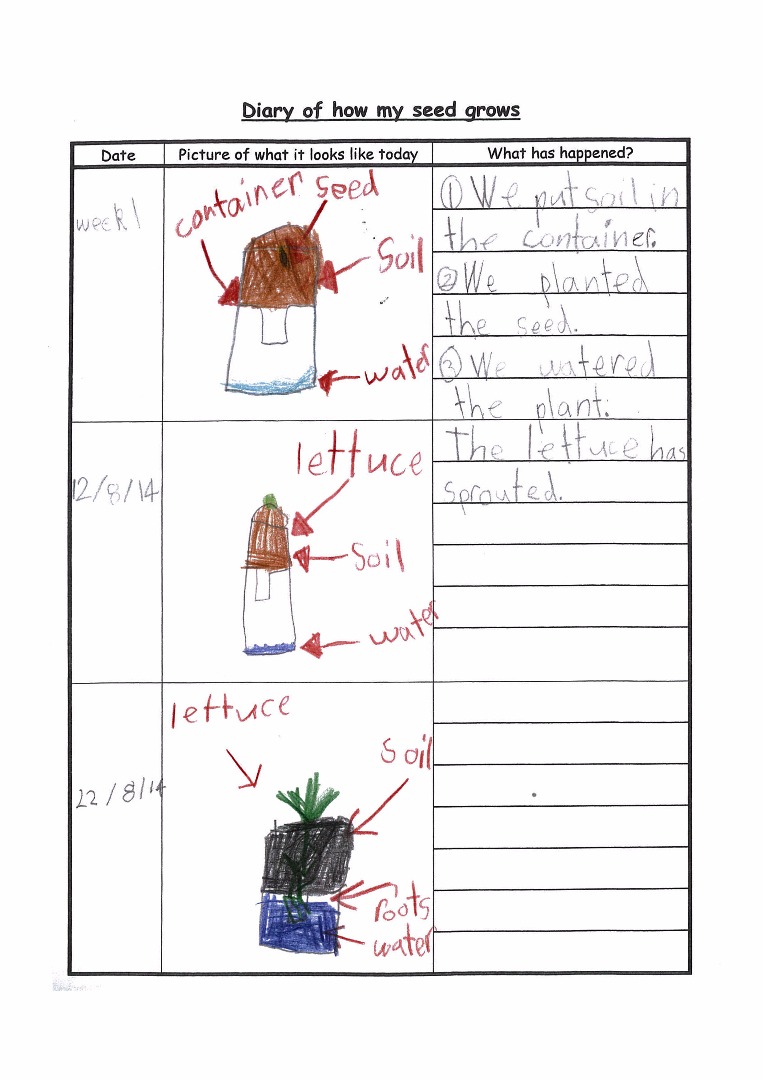 Diary of how my seed grows
Date
Picture of what it looks like today
What has happened?
week 1
container
seed
Soil
water
① We put soil in
the container.
② We planted
the seed.
③ We watered
the plant.
12/8/14
lettuce
Soil
water
The lettuce has
sprouted.
22/8/14
lettuce
Soil
roots
water